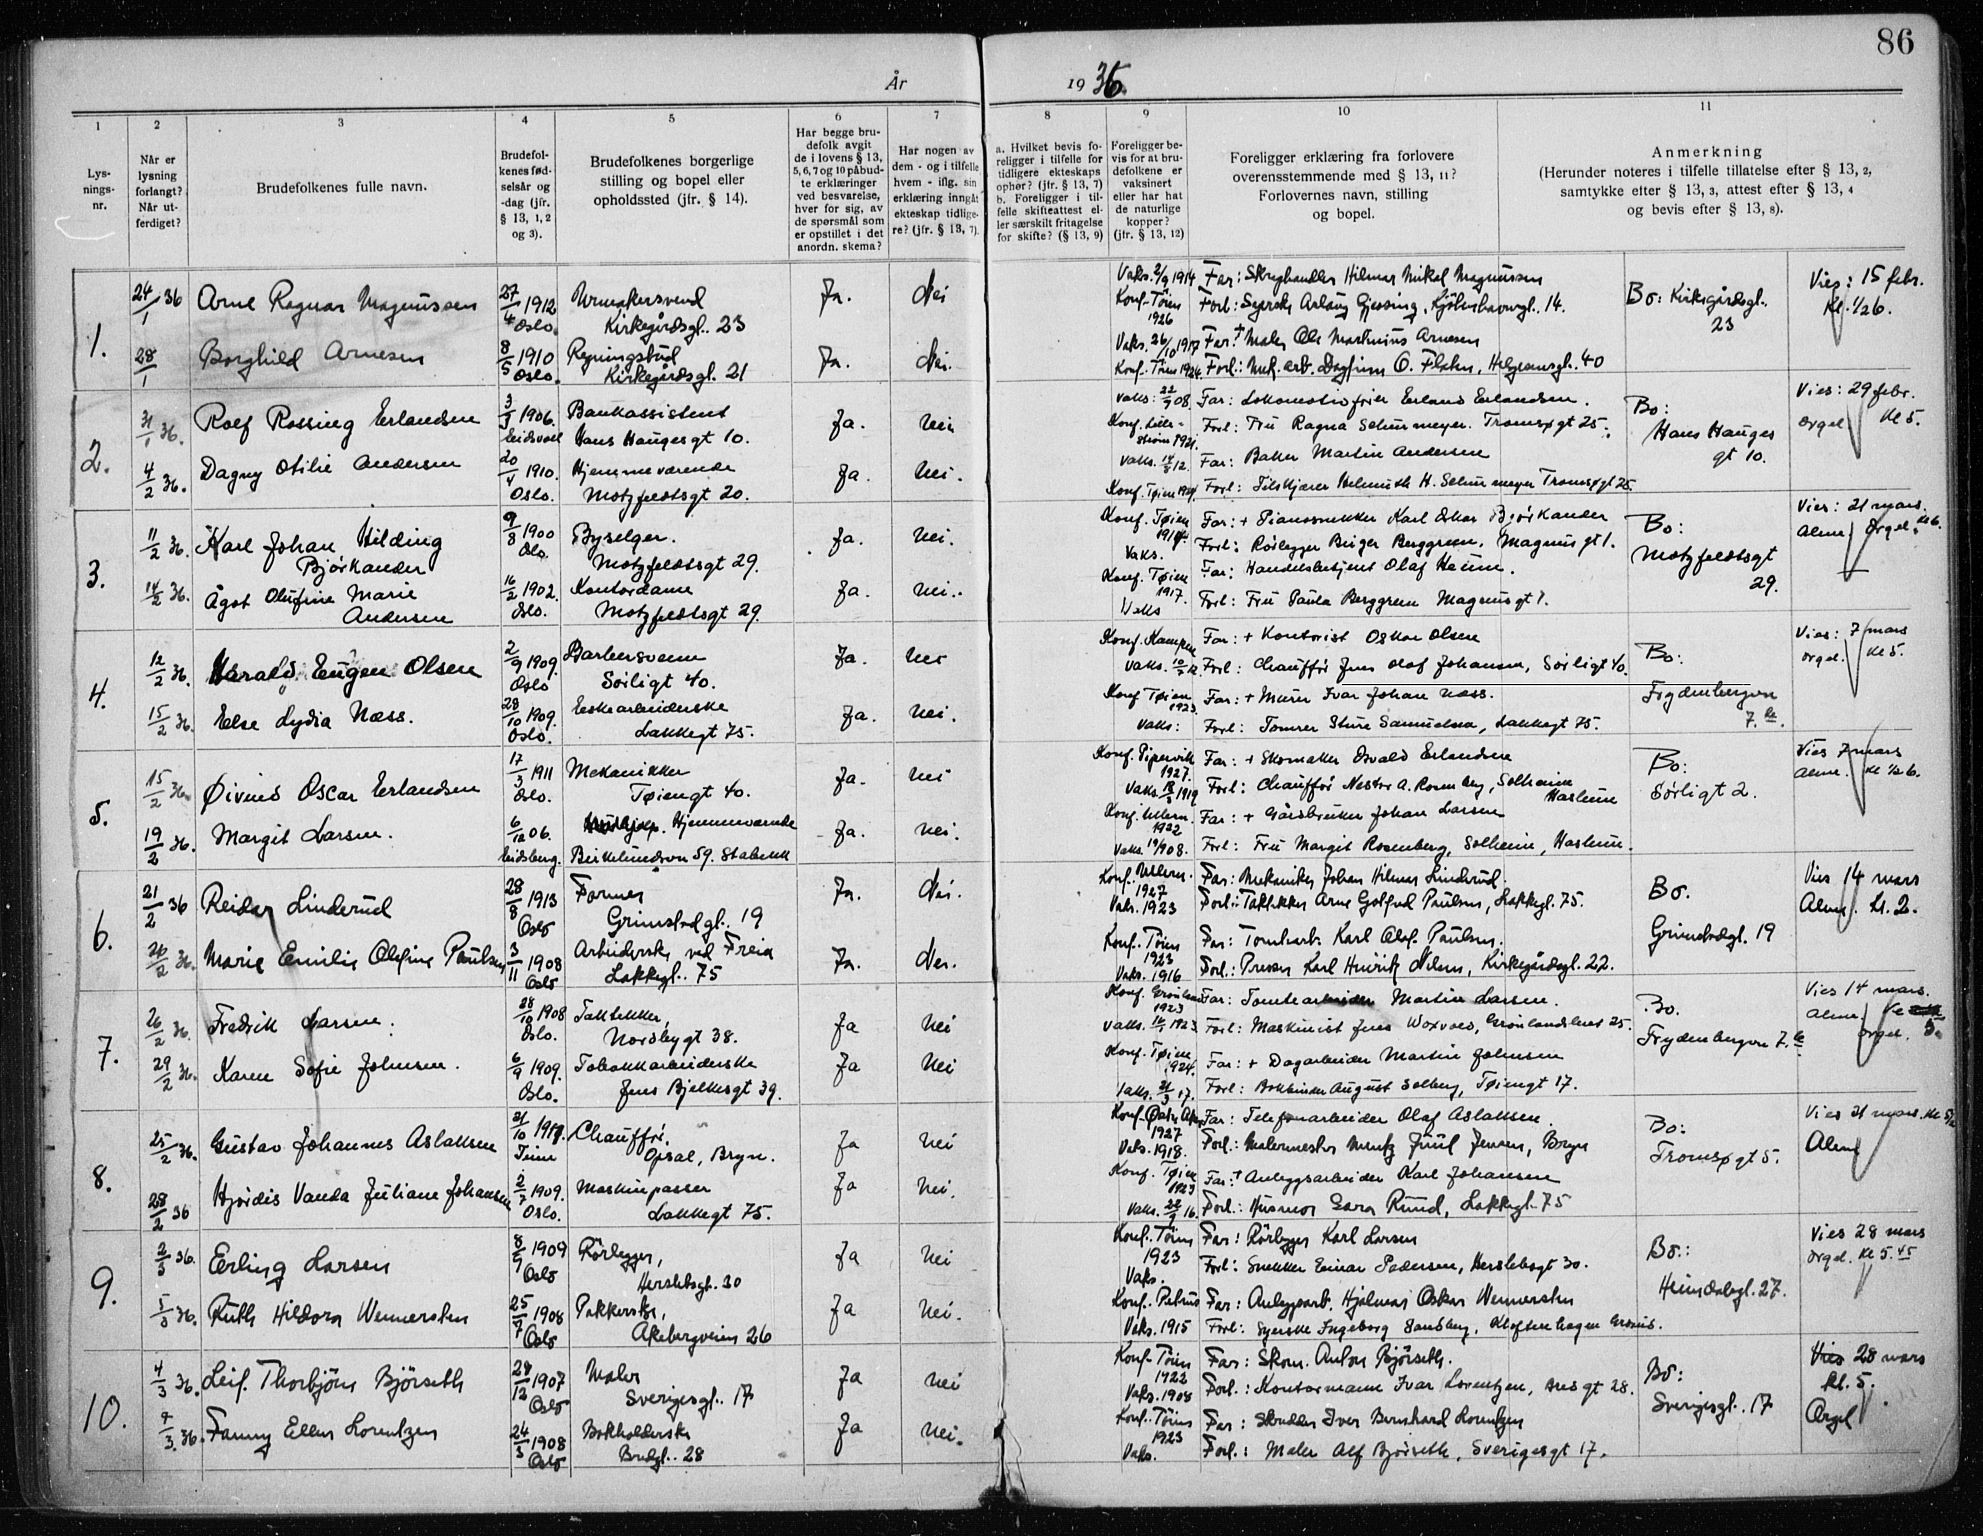 86
År 1936.
1
2
3
4
5
6
7
8
9
10
11
Lys-
nings-
nr.
Når er
lysning
forlangt?
Når ut-
ferdiget?
Brudefolkenes fulle navn.
Brudefol-
kenes fød-
selsår og
-dag (jfr.
§ 13, 1, 2
og 3).
Brudefolkenes borgerlige
stilling og bopel eller
opholdssted (jfr. § 14).
Har begge bru-
defolk avgit
de i lovens § 13,
5, 6, 7 og 10 påbud-
te erklæringer
ved besvarelse,
hver for sig, av
de spørsmål som
er opstillet i det
anordn. skema?
Har nogen av
dem - og i tilfelle
hvem - iflg. sin
erklæring inngåt
ekteskap tidlige-
re? (jfr. § 13, 7).
a. Hvilket bevis fo-
religger i tilfelle for
tidligere ekteskaps
ophør? (jfr. § 13, 7)
b. Foreligger i til-
felle skifteattest el-
ler særskilt fritagelse
for skifte? (§ 13, 9)
Foreligger be-
vis for at bru-
defolkene er
vaksinert
eller har hat
de naturlige
kopper?
(jfr. § 13, 12)
Foreligger erklæring fra forlovere
overensstemmende med § 13, 11?
Forlovernes navn, stilling
og bopel.
Anmerkning
(Herunder noteres i tilfelle tillatelse efter § 13, 2,
samtykke efter § 13, 3, attest efter § 13, 4
og bevis efter § 13, 8).
1.
24/1 36 Arne Ragnar Magnussen 27/4 1912 Oslo Urmakersvend Kirkegårdsgt. 23 Ja. Nei
Vaks. 2/9 1914 Konf. Tøien 1926 Far: Hilmar Mikal Magnussen
Forl: Syerske Aslaug Gjessing, Kjøbenhavngt. 14.
Bo: Kirkegårdsgt. 23 Vies: 15 febr. Kl. 1/2 6.
28/1 Borghild Arnesen 8/5 1910 Oslo. Regningsbud Kirkegårdsgt. 21 Ja. Nei.
Vaks. 26/10 1917 Konf. Tøien 1924. Far: + Maler Ole Martinius Arnesen
Forl: Mek. arb. Dagfinn O. Flaten, Helgesensgt. 40
2.
31/1 36. Rolf Rossing Erlandsen 3/9 1906. Eidsvoll Bankassistent Hans Haugesgt 10. Ja. Nei
Vaks: 22/9 08. Konf. Lille-strøm 1921. Far: Lokomotivfører Erland Erlandsen.
Forl: Fru Ragna Schurmeyer. Tromsøgt 25.
Bo: Hans Hauges gt 10. Vies: 29 febr. orgel Kl 5.
4/2 36. Dagny Otilie Andersen 20/4 1910. Oslo. Hjemmeværende Motzfeldtsgt 20. Ja. Nei.
Vaks. 14/5 12. Konf. Tøien 1924 Far: Baker Martin Andersen
Forl: Helmuth H. Schurmeyer Tromsøgt 25.
3.
11/2 36. Karl Johan Hilding Bjørkander 9/8 1900 Oslo. Byselger. Motzfeldtsgt 29. Ja. Nei.
Konf. Tøien 1914. Vaks. Far: + Pianosnekker Karl Oskar Bjørkander
Forl: Rørlegger Birger Berggreen, Magnusgt 1.
Bo: Motzfeldtsgt 29. Vies: 21 mars. Alm. Orgel. Kl 6.
14/2 36. Ågot Olufine Marie Andersen 16/2 1902. Oslo. Kontordame Motzfeldtsgt 29. Ja. Nei.
Konf. Tøien 1917. Vaks Far: Handelsbetjent Olaf Heum.
Forl: Fru Paula Berggreen Magnusgt 1.
4.
12/2 36. Harald Eugen Olsen 2/9 1909. Oslo Barbersvenn Sørligt 40. Ja. Nei
Konf. Kampen Far: + Kontorist Oskar Olsen
Forl: Chauffør Jens Olaf Johansen, Sørligt 40.
Bo: Frydenbergvn 7. Vies: 7 mars orgel. Kl 5.
15/2 36. Else Lydia Næss. 28/10 1909. Oslo. Eskearbeiderske Lakkegt 75. Ja. Nei.
Konf Tøien 1923. Vaks: Far: + Murer Ivar Johan Næss.
Forl: Tømrer Sture Samuelsen, Lakkegt 75.
5.
15/2 36. Øivind Oscar Erlandsen 17/3 1911 Oslo. Mekanikker Tøiengt 40. Ja. Nei
Konf. Pipervik 1927. Vaks. 18/3 1919 Far: + Skomaker Osvald Erlandsen
Forl: Chauffør Nestor A. Rosenberg, Solheim Haslum
Bo: Sørligt 2. Vies 7 mars Alm. Kl 1/2 6.
19/2 36. Margit Larsen. 6/12 06. Eidsberg. Hjemmeværende Birkelundsvn 59. Stabekk Ja. Nei.
Konf. Ullern. 1922 Vaks. 1908. Far: + Gårdbruker Johan Larsen
Forl: Fru Margit Rosenberg, Solheim, Haslum.
6.
21/2 36 Reidar Linderud 28/8 1913 Oslo Former Grimstadgt. 19 Ja. Nei.
Konf. 1927 Vaks. 1923 Far: Mekaniker Johan Hilmar Linderud.
Forl: Taktekker Arne Paulsen, Lakkegt. 75.
Bo. Grimstadgt. 19 Vies 14 mars Alm. Kl. 2.
26/2 36. Marie Emilie Olefine Paulsen 3/11 1908 Oslo Arbeiderske ved Freia Lakkegt. 75 Ja. Nei.
Konf. Tøien 1923 Vaks. 1916 Far: Tomtearb. Karl Olaf Paulsen.
Forl: Presser Karl Henrik Nilsen, Kirkegårdsgt. 22.
7.
26/2 36. Fredrik Larsen. 28/10 1908 Oslo. Taktekker, Nordbygt 38. Ja Nei
Konf. Grønland 1923 Vaks. 1923. Far: Tomtearbeider Martin Larsen.
Forl: Maskinist Jens Woxvold, Grønlandsleret 25.
Bo. Frydenbergvn 7. Vies 14 mars. Alm. Kl 5. orgel.
29/2 36. Karen Sofie Johnsen. 6/9 1909. Oslo. Tobakkarbeiderske Jens Bjelkesgt 39. Ja Nei
Konf. Tøien 1924. Vaks. 21/3 17. Far: + Dagarbeider Martin Johnsen
Forl: Bokbinder August Solberg, Tøiengt 17.
8.
25/2 36. Gustav Johannes Aslaksen 21/10 Time Chauffør, Opsal, Bryn. Ja Nei
Konf. Østre Aker 1927 Vaks. 1918. Far: Telefonarbeider Olaf Aslaksen.
Forl: Malermester Mentz Juul Jensen, Bryn
Bo: Tromsøgt 5. Vies 21 mars. Alm
28/2 36 Hjørdis Vanda Juliane Johansen 2/7 1909. Oslo. Maskinpasser Lakkegt 75. Ja Nei.
Konf. Tøien 1923 Far: + Anleggsarbeider Karl Johansen
Vaks. 16. Forl: Husmor Sara Rund, Lakkegt. 75
9.
2/3 36. Erling Larsen 8/9 1909 Oslo Rørlegger, Herslebsgt. 30 Ja Nei
Konf. Tøien 1923 Vaks. Far: Rørlegger Karl Larsen
Forl: Snekker Einar Pedersen, Herslebsgt 30.
Bo: Heimdalsgt. 27. Vies 28 mars orgel. Kl 5.45
5/3 36. Ruth Hildora Wennersten 25/7 1908 Oslo Pakkerske, Åkebergveien 26 Ja Nei.
Konf. Petrus Vaks. 1915 Far: Anleggsarb. Hjalmar Oskar Wennersten
Forl: Syerske Ingeborg Sandberg, Kloftenhagen Grorud.
10.
4/3 36. Leif Thorbjørn Bjørseth 28/12 1907 Oslo Maler Sverigesgt. 17 Ja Nei
Konf. Tøien 1922 Vaks. 1908 Far: Skom. Anton Bjørseth.
Forl: Kontormann Ivar Lorentzen, 28.
Bo: Sverigesgt. 17 Vies 28 mars kl. 5. Orgel
4/3 36. Fanny Ellen Lorentzen 24/3 1908 Oslo Bokholderske 28 Ja Nei.
Konf. Tøien 1923 Vaks. Far: Skredder Iver Bernhard Lorentzen
Forl: Maler Alf Bjørseth, Sverigesgt 17.